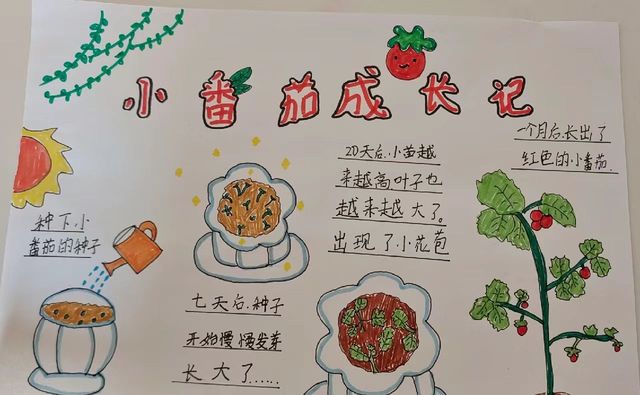 小番茄成长记
种下小
番茄的种子
七天后.种子
开始慢慢发芽
长大了……
20天后.小苗越
来越高叶子也
越来越大了。
出现了小花苞
一个月后.长出了
红色的小番茄.